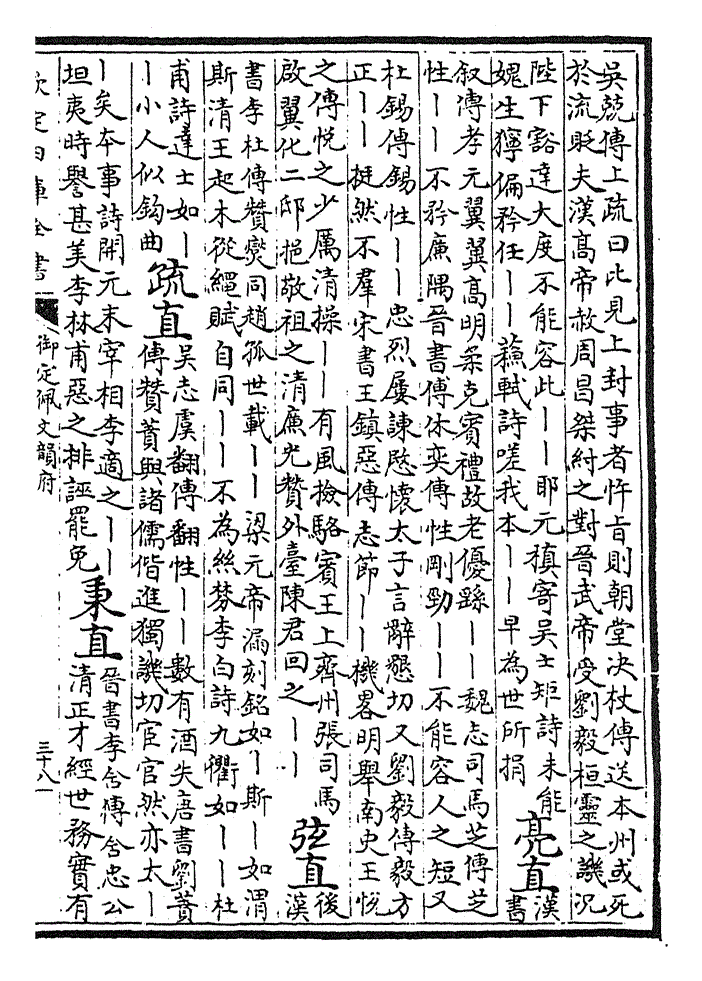 吳兢傳上疏曰比見上封事者忤旨則朝堂決杖傳送本州或死
於流貶夫漢高帝赦周昌桀紂之對晉武帝受劉毅桓靈之譏況
陛下豁達大度不能容此丨丨耶元稹寄吳士矩詩未能
媿生獰偏矜任丨丨蘇軾詩嗟我本丨丨早為世所捐
亮直
漢
書
叙傳孝元翼翼高明柔克賓禮故老優繇丨丨魏志司馬芝傳芝
性丨丨不矜廉隅晉書傅休奕傳性剛勁丨丨不能容人之短又
杜錫傳錫性丨丨忠烈屢諫愍懷太子言辭懇切又劉毅傳毅方
正丨丨挺然不羣宋書王鎮惡傳志節丨丨機畧明舉南史王悅
之傳悅之少厲清操丨丨有風檢駱賓王上齊州張司馬
啟翼化二邸挹敬祖之清廉光贊外臺陳君回之丨丨
弦直
後
漢
書李杜傳贊燮同趙孤世載丨丨梁元帝漏刻銘如丨斯丨如渭
斯清王起木從繩賦自同丨丨不為絲棼李白詩九衢如丨丨杜
甫詩達士如丨
丨小人似鈎曲
疏直
吳志虞翻傳翻性丨丨數有酒失唐書劉蕡
傳贊蕡與諸儒偕進獨譏切宦官然亦太丨
丨矣本事詩開元末宰相李適之丨丨
坦夷時譽甚美李林甫惡之排誣罷免
秉直
晉書李含傳含忠公
清正才經世務實有
欽定四庫全書
御定佩文韻府
三十八一